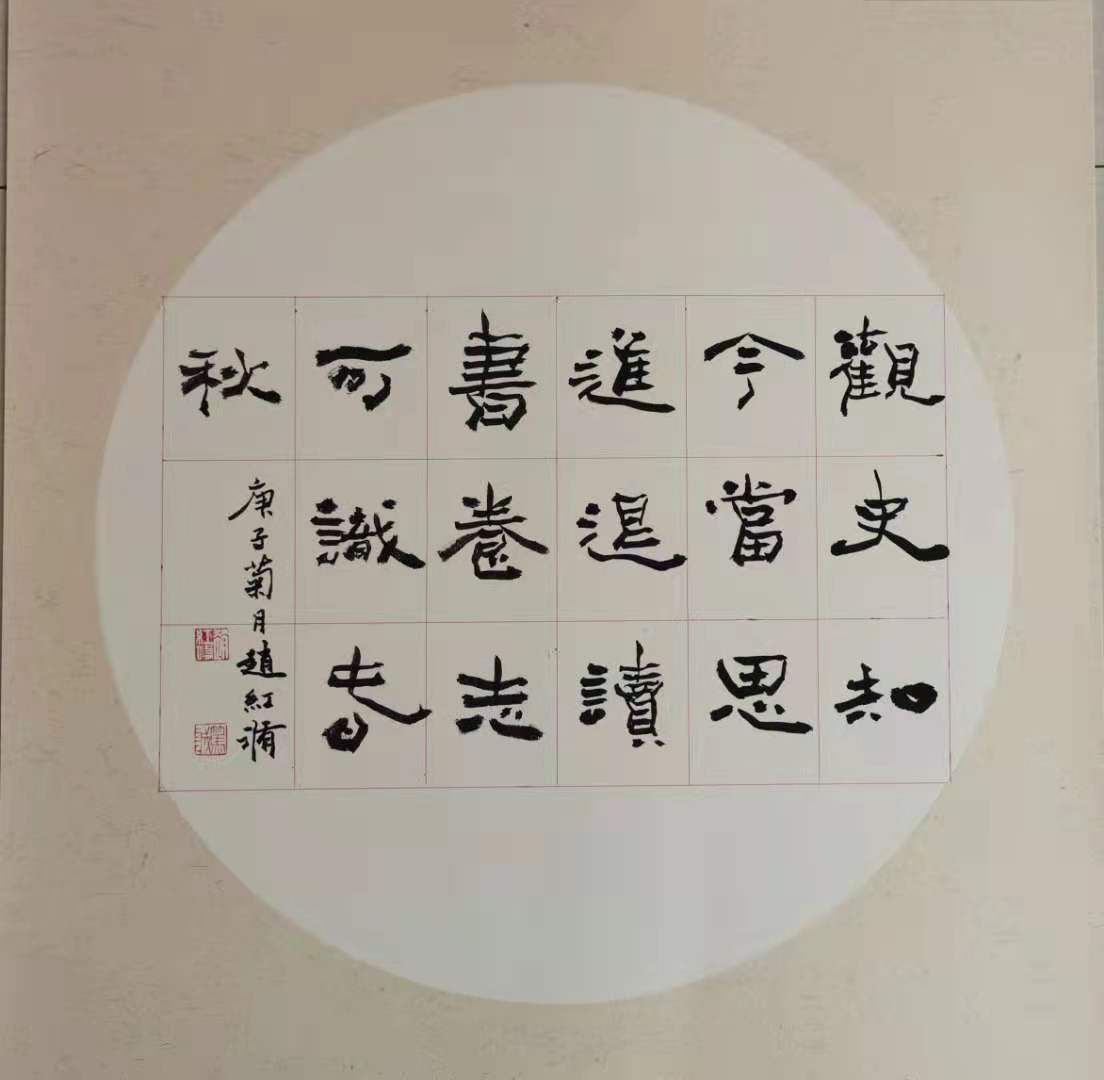 觀史知
今當思
進退讀
書養志
可識春
秋
庚子菊月趙紅